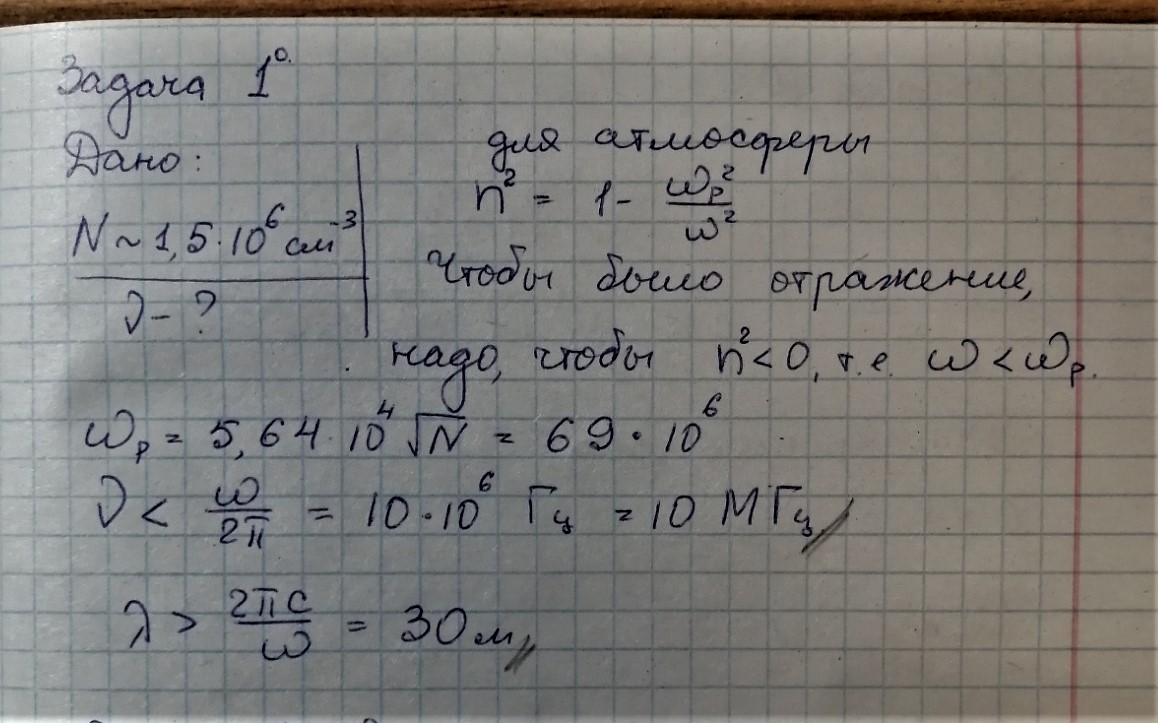 Задача 1⁰.
Дано:
N ~ 1,5·10⁶ см⁻³
ν - ?
для атмосферы
n² = 1 - ωₚ²/ω²
Чтобы было отражение,
надо, чтобы n² < 0, т.е. ω < ωₚ.
ωₚ = 5,64·10⁴ √N = 69·10⁶
ν < ω/2π = 10·10⁶ Гц = 10 МГц //
λ > 2πc/ω = 30 м //